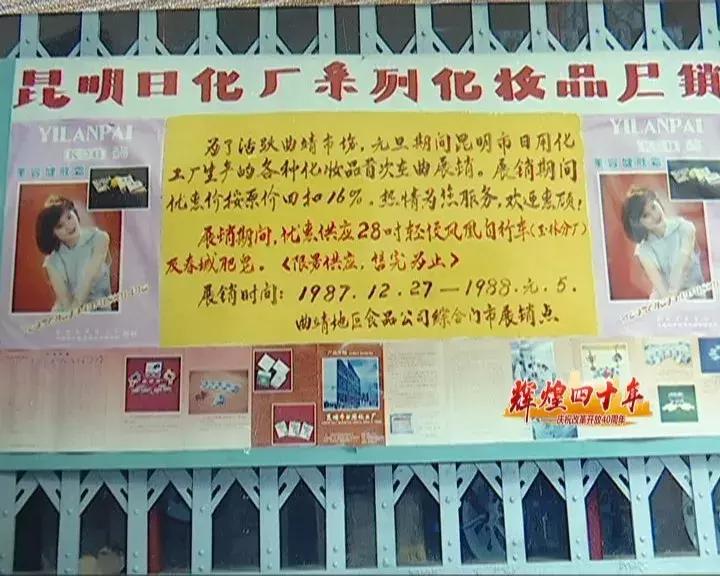 昆明日化厂系列化妆品尸销
YILANPAI
美容健肤霜
为了活跃曲靖市场,元旦期间昆明市日用化
工厂生产的各种化妆品首次在曲展销。展销期间
优惠价按票价回扣16%。热情为您服务,欢迎惠顾!
展销期间,优惠供应28吋轻便凤凰自行车(玉林分厂)
及春城肥皂。<限量供应,售完为止>
展销时间:1987.12.27—1988.元.5.
曲靖地区食品公司综合门市展销点
YILANPAI
美容健肤霜
昆明市日用化工厂
辉煌四十年
庆祝改革开放40周年